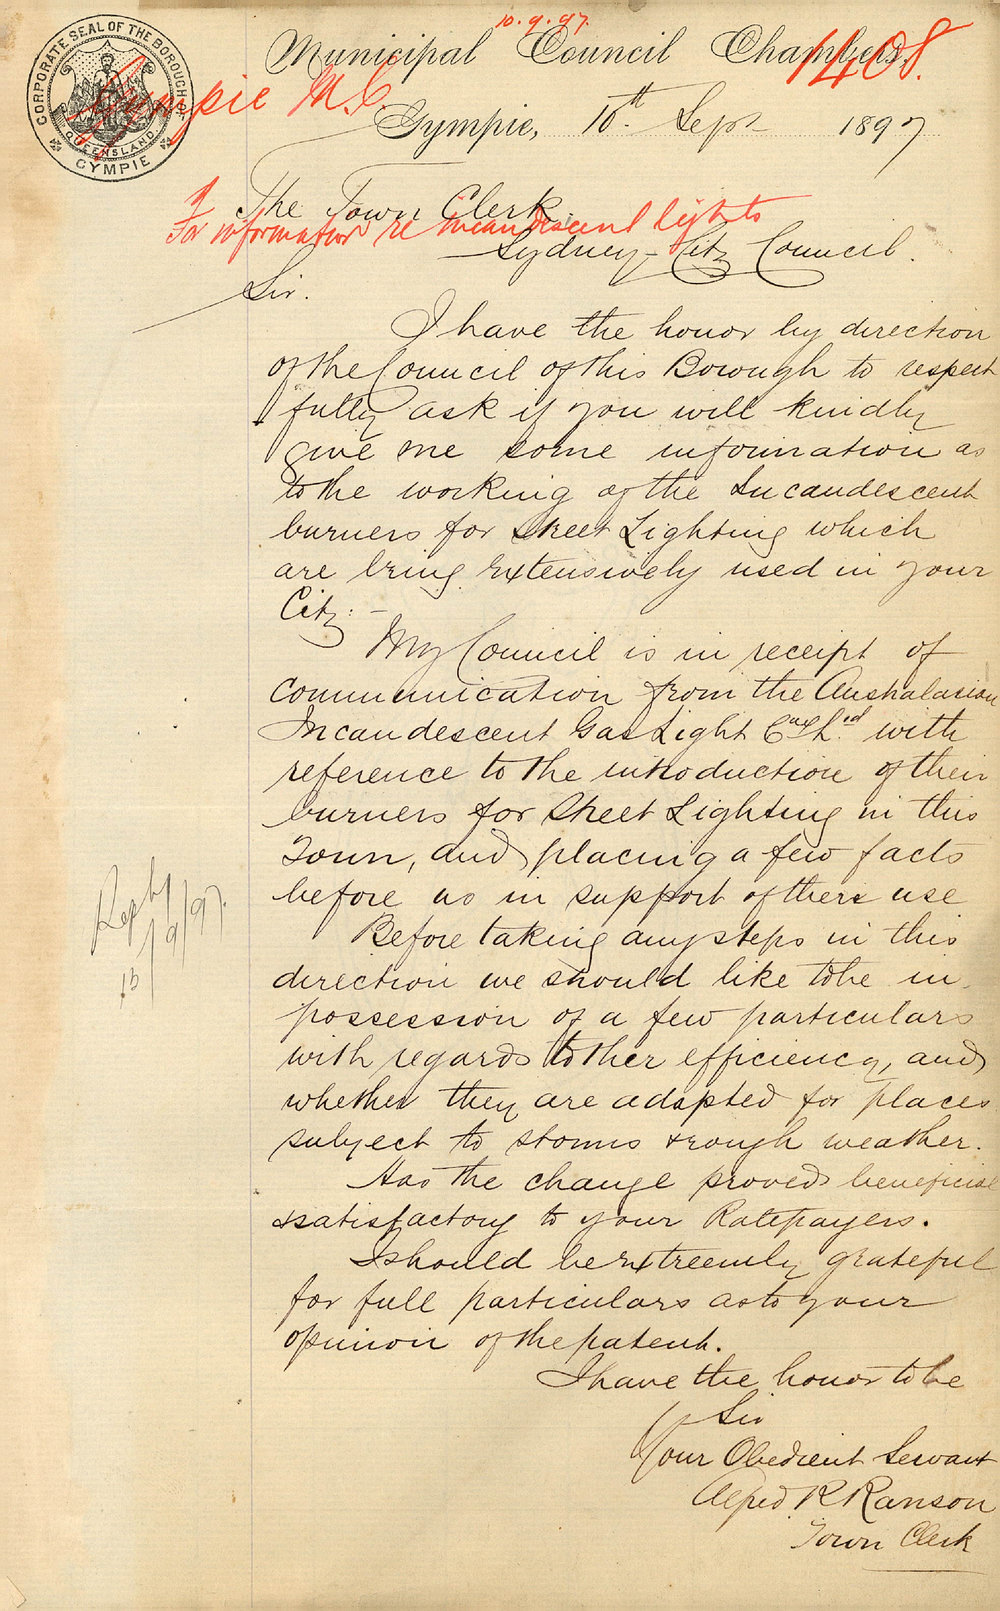 10.9.97.
Municipal Council Chambers,
1408.
CORPORATE SEAL OF THE BOROUGH OF
GYMPIE
QUEENSLAND
Gympie M.C.
Gympie, 10th Sept 1897
The Town Clerk,
For information re incandescent lights
Sydney City Council.
Sir.
I have the honor by direction
of the Council of this Borough to respect
fully ask if you will kindly
give me some information as
to the working of the Incandescent
burners for Street Lighting which
are being extensively used in your
City: -
My Council is in receipt of
communication from the Australasian
Incandescent Gas Light Coy Ltd with
reference to the introduction of their
burners for Street Lighting in this
Town, and placing a few facts
before us in support of there use
Before taking any steps in this
direction we should like to be in
possession of a few particulars
with regards to ther efficiency, and
whether they are adapted for places
subject to storms & rough weather.
Has the change proved beneficial
& satisfactory to your Ratepayers.
I should be extreemly grateful
for full particulars as to your
opinion of the patent.
I have the honor to be
Sir
Your Obedient Servant
Alfred R Ranson
Town Clerk
Rep by
13/9/97.